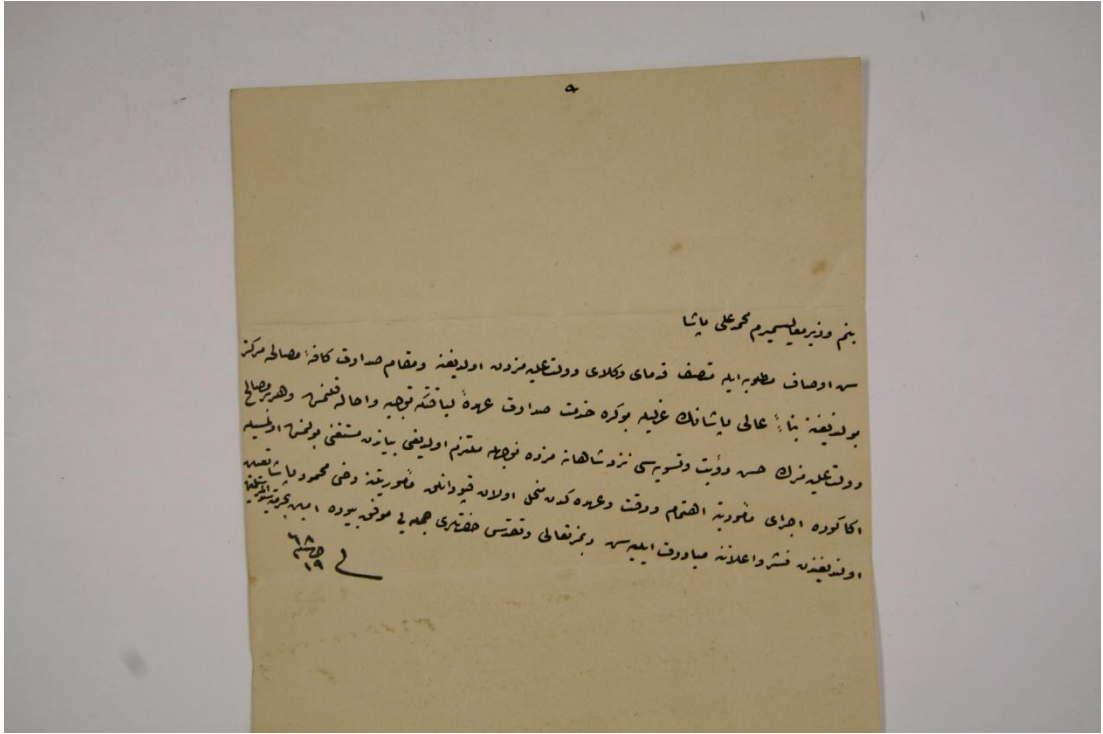 ٩
بنم وزير معاليسميرم محمد علی پاشا
سن اوصاف مطلوبه ايله متصف قدمای وكلای دولت عليه مزدن اولديغڭه ومقام صدارت كافۀ مصالحه مركز
بولنديغنه بناءً عالی پاشانك عزليله بو كره خدمت صدارت عهدۀ لياقتڭه توجيه واحاله قلنمش وهر بر مصالح
دولت عليه مزك حسن رؤيت وتسويه سی نزد شاهانه مزده نوجهله ملتزم اولديغی بياندن مستغنی بولنمش اولمسيله
اڭا كوره اجرای مأموريته اهتمام ودقت وعهده كدن منحل اولان قپودانلق مأموريتنه دخی محمود پاشا تعيين
اولنديغندن نشر واعلاننه مبادرت ايليه سن ربمز تعالی وتقدس حضرتلری جمله يی موفق بيوره امين بحرمة سيد المرسلين
فی ١٩ ل سنه ٦٨